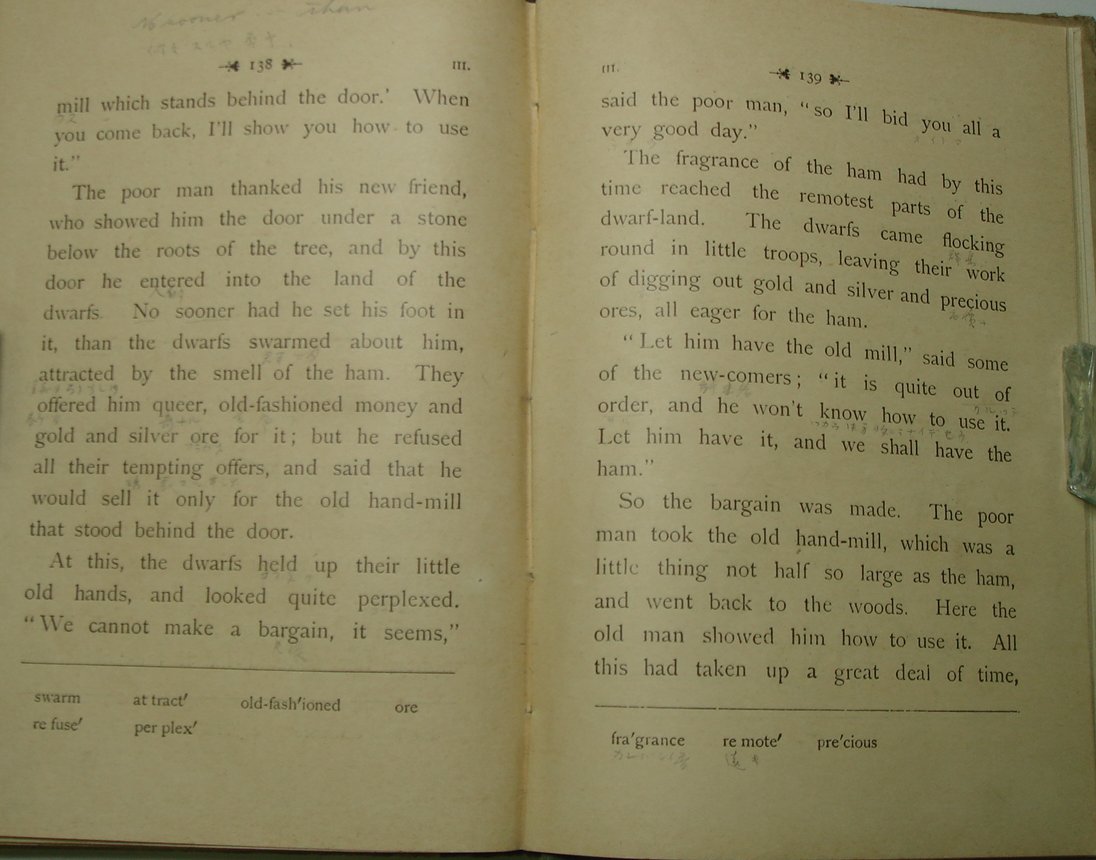 No sooner — than
138
III.
mill which stands behind the door.' When
you come back, I'll show you how to use
it."
The poor man thanked his new friend,
who showed him the door under a stone
below the roots of the tree, and by this
door he entered into the land of the
dwarfs. No sooner had he set his foot in
it, than the dwarfs swarmed about him,
attracted by the smell of the ham. They
offered him queer, old-fashioned money and
gold and silver ore for it; but he refused
all their tempting offers, and said that he
would sell it only for the old hand-mill
that stood behind the door.
At this, the dwarfs held up their little
old hands, and looked quite perplexed.
"We cannot make a bargain, it seems,"
swarm at tract′ old-fash′ioned ore
re fuse′ per plex′
III.
139
said the poor man, "so I'll bid you all a
very good day."
The fragrance of the ham had by this
time reached the remotest parts of the
dwarf-land. The dwarfs came flocking
round in little troops, leaving their work
of digging out gold and silver and precious
ores, all eager for the ham.
"Let him have the old mill," said some
of the new-comers; "it is quite out of
order, and he won't know how to use it.
Let him have it, and we shall have the
ham."
So the bargain was made. The poor
man took the old hand-mill, which was a
little thing not half so large as the ham,
and went back to the woods. Here the
old man showed him how to use it. All
this had taken up a great deal of time,
fra′grance re mote′ pre′cious